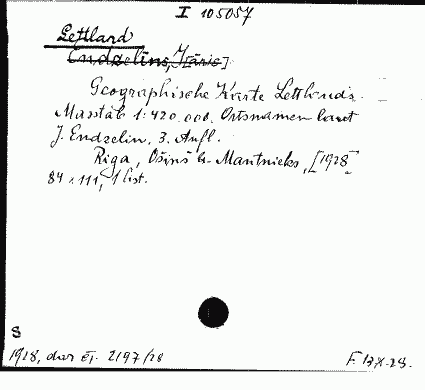 I 105057
Lettland
Endzelīns, J[ānis]
Geographische Karte Lettlands.
Masstab 1:420.000. Ortsnamen laut
J. Endzelin. 3. Aufl.
Riga, Ošiņš & Mantnieks, [1928]
84 x 111, 1 list.
S
1928, dar 2197/28
F